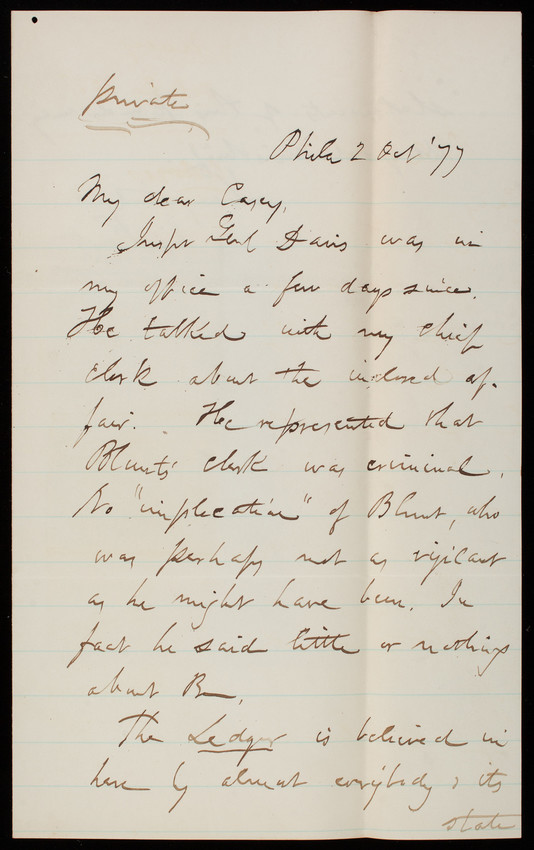 private
Phila 2 Oct '77
My dear Casey,
Inspr Genl Davis was in
my office a few days since.
He talked with my chief
clerk about the inclosed af-
fair. He represented that
Blunt's clerk was criminal.
No "implication" of Blunt, who
was perhaps not as vigilant
as he might have been. In
fact he said little or nothing
about B—.
The Ledger is believed in
here by almost everybody & its
state